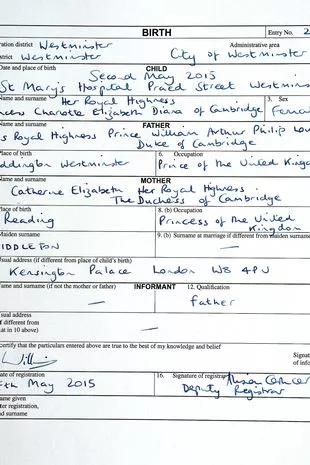 BIRTH
Entry No. 2
ration district Westminster
Administrative area
strict Westminster
City of Westminster
Date and place of birth
CHILD
Second May 2015
St Mary's Hospital Praed Street Westmins
Name and surname
3. Sex
Her Royal Highness
ncess Charlotte Elizabeth Diana of Cambridge
Female
Name and surname
FATHER
s Royal Highness Prince William Arthur Philip Lou
Duke of Cambridge
Place of birth
6. Occupation
ddington Westminster
Prince of the United Kingd
Name and surname
MOTHER
Catherine Elizabeth Her Royal Highness
The Duchess of Cambridge
Place of birth
8. (b) Occupation
Reading
Princess of the United
Kingdom
Maiden surname
9. (b) Surname at marriage if different from maiden surname
IDDLETON
—
Usual address (if different from place of child's birth)
Kensington Palace London W8 4PU
Name and surname (if not the mother or father)
INFORMANT
12. Qualification
—
Father
Usual address
f different from
at in 10 above)
—
certify that the particulars entered above are true to the best of my knowledge and belief
Willi
Signat
of info
ate of registration
16. Signature of registrar
th May 2015
Deputy Registrar
ame given
ter registration,
nd surname